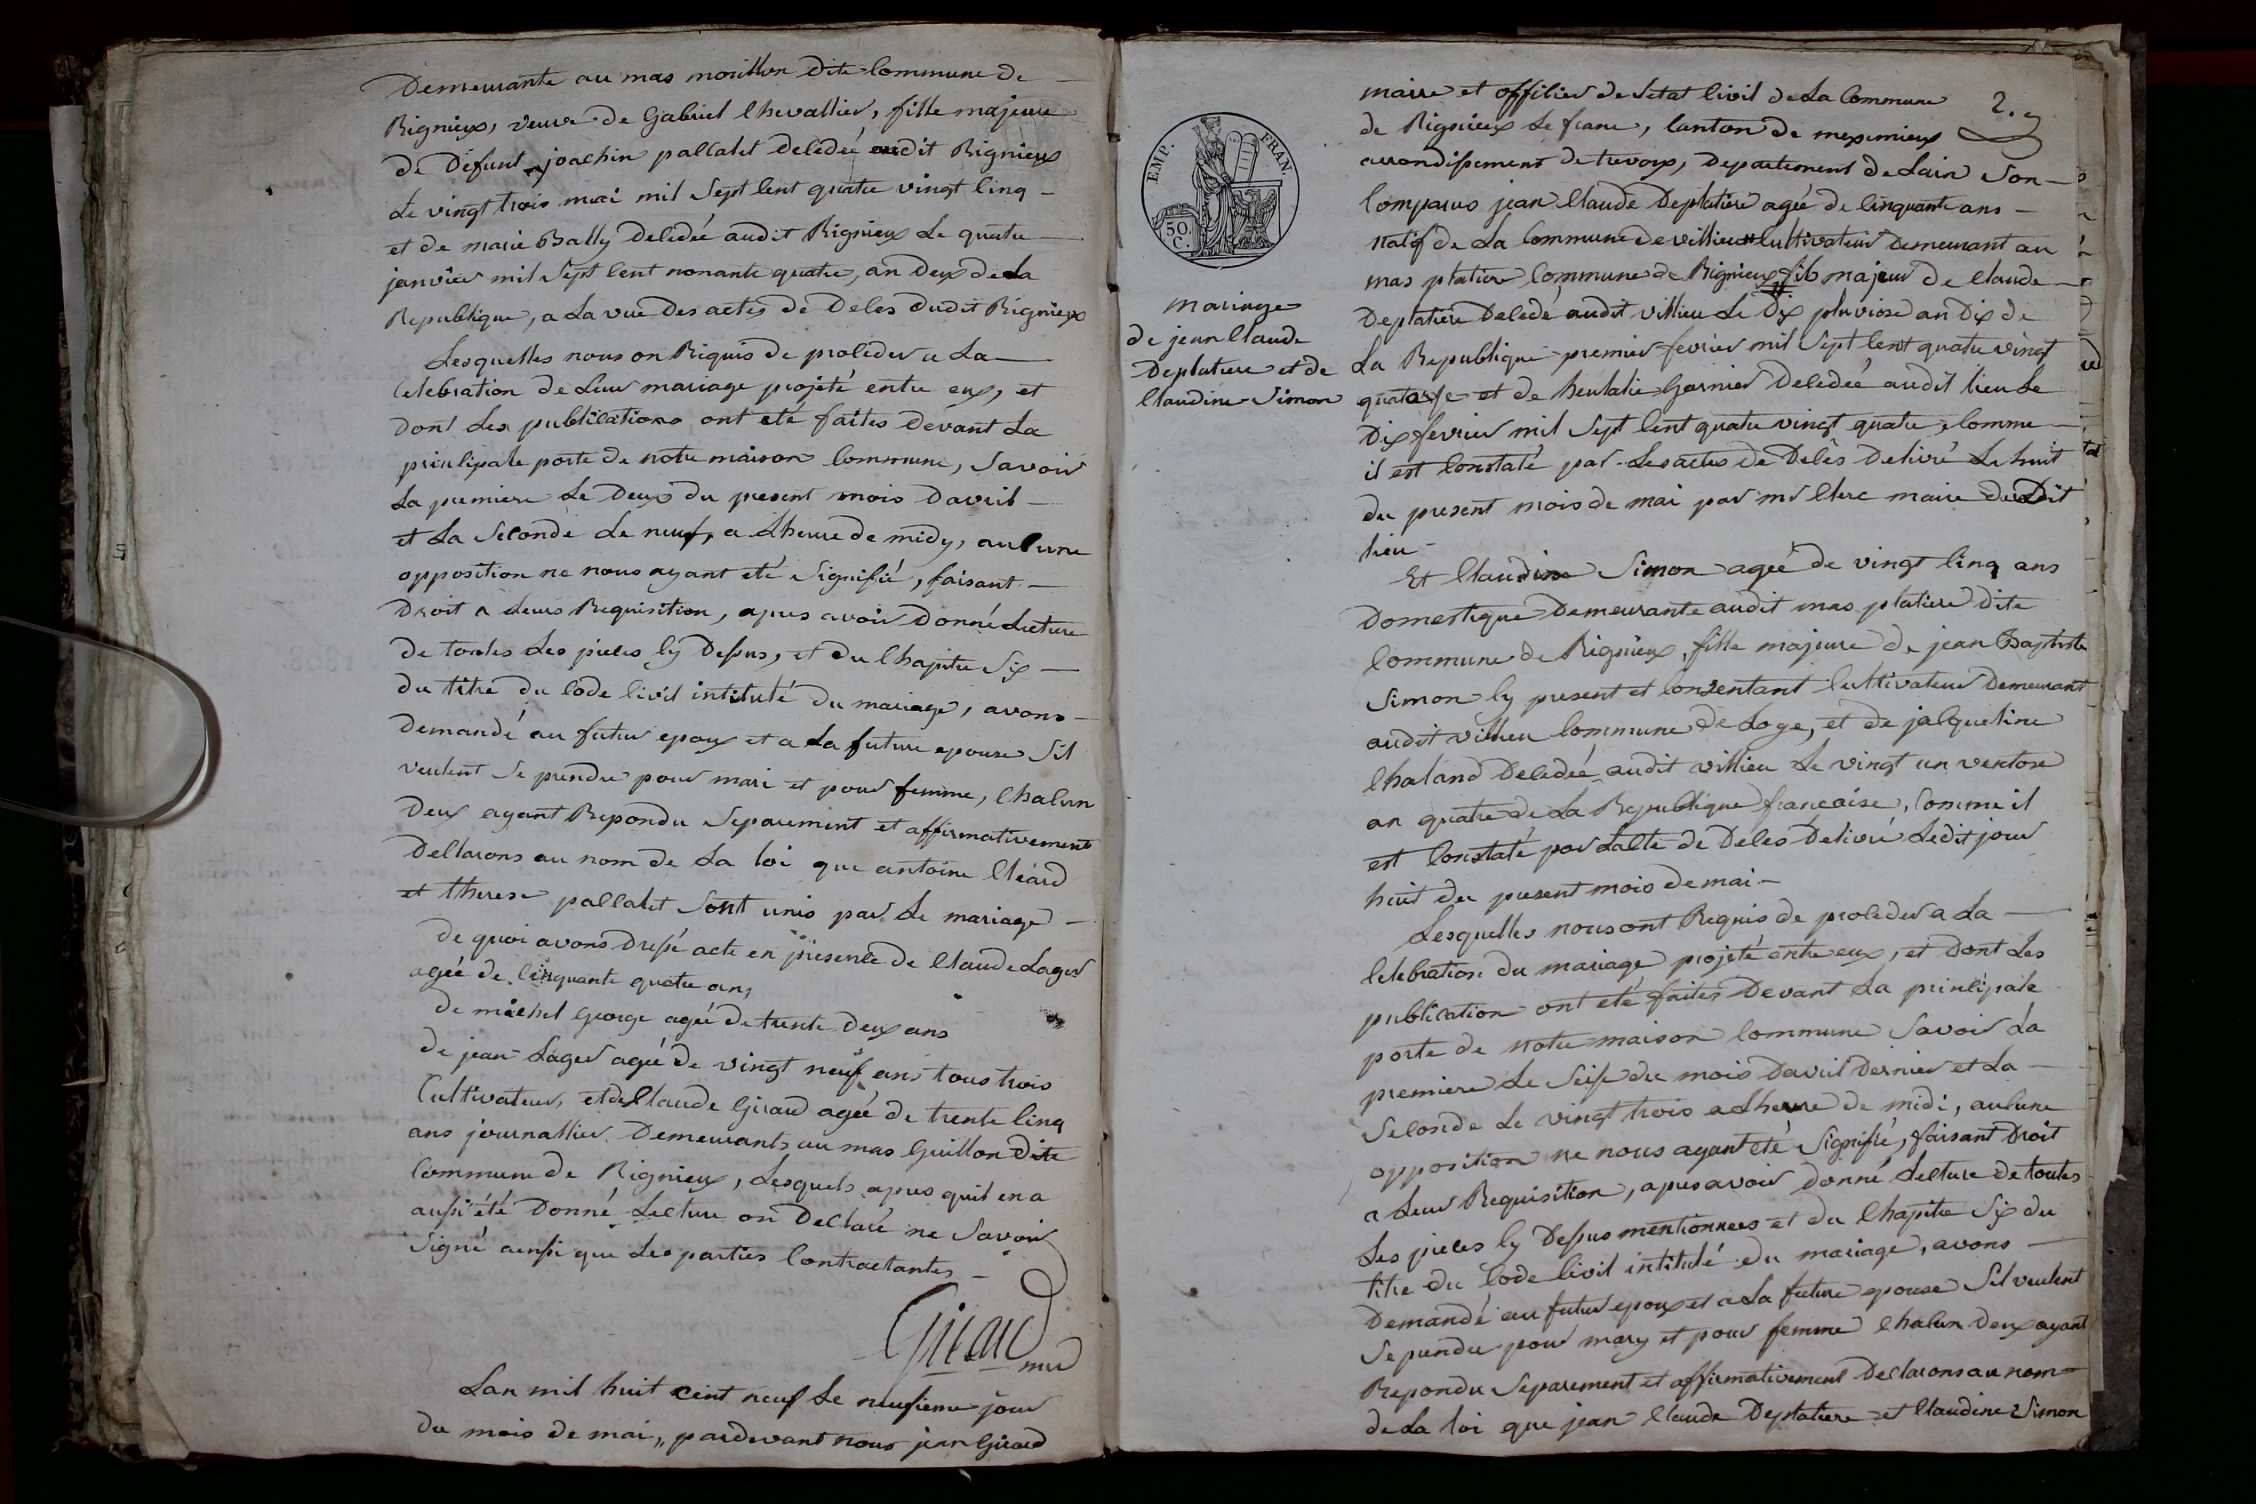 Demeurante au mas morillon dite Commune de
Rignieux, veuve de Gabriel Chevallier, fille majeure
de Défunt joachin pallatet decedeé audit Rignieux
Le vingt trois mai mil Sept Cent quatre vingt Cinq
et de marie Bally decedeé audit Rignieux Le quatre
janvier mil Sept Cent nonante quatre, an Deux de La
Republique, a La vue Des actes de Deces dudit Rignieux
Lesquelles nous on Riquis de proceder a La
Celebration de Leur mariage projeté entre eux, et
Dont Les publications ont eté faites devant La
principale porte de notre maison Commune, Savoir
La premiere Le Deux du present mois Davril
et La Seconde Le neuf, a Lheure de midy, aucune
opposition ne nous ayant eté Signifié, faisant
Droit a Leurs Requisition, apres avoir Donné Lecture
de toutes Les pieces Cy Dessus, et du Chapitre Six
du titre du Code Civil intitulé Du mariage, avons
Demandé au futur epoux et a La future epouse Sil
veulent Se prendre pour mari et pour femme, Chacun
Deux ayant Repondu Separement et affirmativement
Declarons au nom de La loi que antoine Cléard
et therese pallatet Sont unis par Le mariage
De quoi avons Dressé acte en présence de Claude Lager
ageé de Cinquante quatre ans,
De michel George ageé de trente Deux ans
De jean Lager ageé De vingt neuf ans tous trois
Cultivateurs, et de Claude Girard ageé de trente Cinq
ans journallier Demeurants au mas Guillon dite
Commune de Rignieux, Lesquels apres quil en a
aussi été Donné Lecture on Declaré ne Savoir
Signé ainsi que Les parties Contractantes
Girard
mre
Lan mil huit cent neuf Le neufieme jour
du mois de mai,, pardevant nous jean Girard
2.
EMP. FRAN.
50. C.
mariage
de jean Claude
Deplatiere et de
Claudine Simon
maire et officier de Letat Civil de La Commune
de Rignieux Le franc, Canton de meximieux
arrondissement de trevoux, Departement de Lain Son
Comparus jean Claude Deplatiere ageé de Cinquante ans
natif de La Commune de villieu Cultivateur Demeurant au
mas platiere Commune de Rignieux fils majeur de Claude
Deplatiere Decedé audit villieu Le Dix pluviose an Dix de
La Republique premier fevrier mil Sept Cent quatre vingt
quatorze et de heulalie Garnier Decedeé audit lieu Le
Dix fevrier mil Sept Cent quatre vingt quatre, Comme
il est Constaté par Les actes de Décès Delivré Le huit
du present mois de mai par mr Clerc maire du Dit
lieu
Et Claudine Simon ageé de vingt Cinq ans
Domestique Demeurante audit mas platiere dite
Commune de Rignieux, fille majeure de jean Baptiste
Simon Cy present et Consentant Cultivateur Demeurant
audit villieu Commune de Loye, et de jacqueline
Chaland Decedeé audit villieu Le vingt un ventose
an quatre de La Republique francaise, Comme il
est Constaté par Lacte de Deces Delivré Ledit jour
huit du present mois de mai
Lesquelles nous ont Requis de proceder a La
Celebration du mariage projeté entre eux, et Dont Les
publication ont eté faites Devant La principale
porte de notre maison Commune Savoir La
premiere Le Seise du mois Davril Dernier et La
Seconde Le vingt trois a Lheure de midi, aucune
opposition ne nous ayant eté Signifié, faisant Droit
a Leur Requisition, apres avoir Donné Lecture de toutes
Les pieces Cy Dessus mentionnees et du Chapitre Six du
titre du Code Civil intitulé du mariage, avons
Demandé au futur epoux et a La future epouse Sil veulent
Se prendre pour mary et pour femme Chacun Deux ayant
Repondu Separement et affirmativement Declarons au nom
de La loi que jean Claude Deplatiere et Claudine Simon